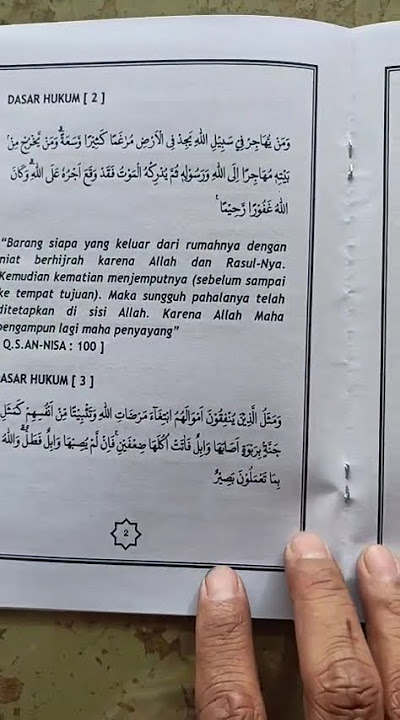 DASAR HUKUM [ 2 ]
وَمَنْ يُهَاجِرْ فِيْ سَبِيْلِ اللهِ يَجِدْ فِى الْاَرْضِ مُرٰغَمًا كَثِيْرًا وَّسَعَةًۗ وَمَنْ يَّخْرُجْ مِنْۢ
بَيْتِهٖ مُهَاجِرًا اِلَى اللهِ وَرَسُوْلِهٖ ثُمَّ يُدْرِكْهُ الْمَوْتُ فَقَدْ وَقَعَ اَجْرُهٗ عَلَى اللهِۗ وَكَانَ
اللهُ غَفُوْرًا رَّحِيْمًا
“Barang siapa yang keluar dari rumahnya dengan
niat berhijrah karena Allah dan Rasul-Nya.
Kemudian kematian menjemputnya (sebelum sampai
ke tempat tujuan). Maka sungguh pahalanya telah
ditetapkan di sisi Allah. Karena Allah Maha
pengampun lagi maha penyayang”
Q.S.AN-NISA : 100 ]
DASAR HUKUM [ 3 ]
وَمَثَلُ الَّذِيْنَ يُنْفِقُوْنَ اَمْوَالَهُمُ ابْتِغَاۤءَ مَرْضَاتِ اللهِ وَتَثْبِيْتًا مِّنْ اَنْفُسِهِمْ كَمَثَلِ
جَنَّةٍۢ بِرَبْوَةٍ اَصَابَهَا وَابِلٌ فَاٰتَتْ اُكُلَهَا ضِعْفَيْنِۚ فَاِنْ لَّمْ يُصِبْهَا وَابِلٌ فَطَلٌّۗ وَاللهُ
بِمَا تَعْمَلُوْنَ بَصِيْرٌ
2